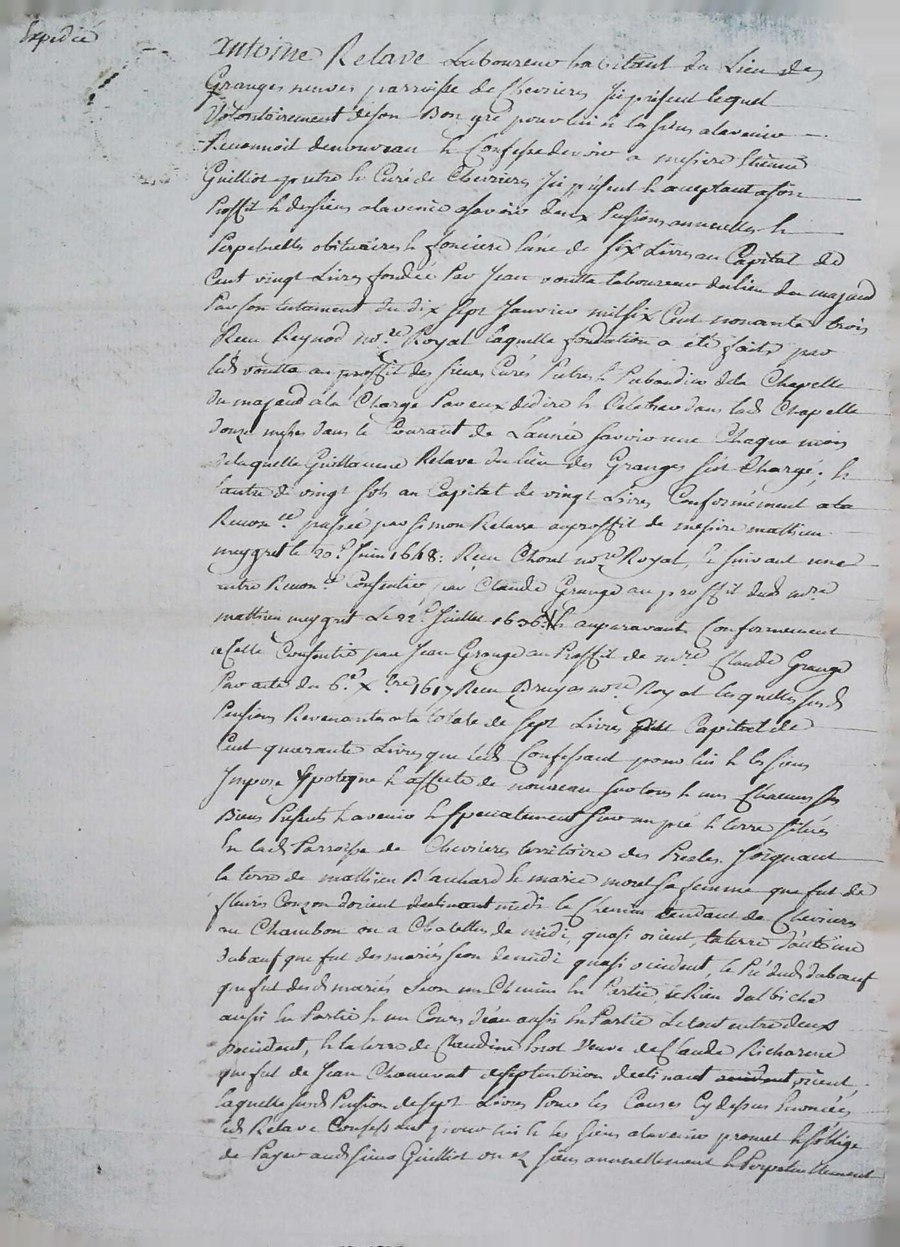 Expedié
Antoine Relave Laboureur habitant du Lieu des
Granges neuves parroisse de Chevrieres Jci présent lequel
Volontairement deson Bon gré pour lui & les siens alavenir
Reconnoit denouveau & Confesse devoir a messire Etienne
Guilliot prêtre & Curé de Chevrieres Jci présent & acceptant ason
Proffit & des siens alavenir asavoir deux Pensions annuelles &
Perpetuelles obituaires & foncieres l'une de six Livres au Capital de
Cent vingt Livres fondée Par Jean voutta laboureur dulieu du majaud
Par son testament du dix sept Janvier mil six Cent nonante trois
Receu Reynod no.re Royal laquelle fondation a été faite par
led. voutta au proffit des sieurs Curés Prêtres & Prebandier dela Chapelle
du majaud ala Charge Par eux de dire & Celebrer dans lad. Chapelle
douze messes dans le Courant de L'année savoir une Chaque mois
delaquelle Guillaume Relave du lieu des Granges s'est Chargé; &
L'autre de vingt sols au Capital de vingt Livres Conformément ala
Recon.ce passée par simon Relave auproffit de messire mathieu
meygret le 20.e Juin 1648. Receu Chorel no.re Royal, & suivant une
autre Recon.ce Consentie par Claude Grange au proffit dud. m.re
mathieu meygret Le 22.e Juillet 1636. & auparavant Conformement
a Celle Consentie par Jean Grange au Proffit de m.re Claude Grange
Par acte du 6.e Xbre 1617 Receu Bruyas no.re Royal lesquelles susd.
Pensions Revenantes ala totale de sept Livres Capital de
Cent quarante Livres que led. Confessant pour lui & les siens
Impose Ypoteque & affecte de nouveau sur tous & uns Chacuns ses
Biens Presents & avenir & specialement sur un pré & terre situés
En lad. Parroisse de Chevrieres territoire des Presles Joignant
la terre de mathieu Blanchard & marie morel sa femme que fut de
fleurs Couzon dorient declinant midi le Chemin tendant de Chevrieres
au Chambon ou a Chatelles de midi, quasi orient, la terre d'antoine
dubœuf que fut des mariés Jeon de midi quasi occident, le Pré dud. dubœuf
que fut desd. mariés Jeon un Chemin En Partie, le Rieu dalbiche
aussi En Partie & un Cours d'eau aussi En Partie Le tout entre deux
occident, & la terre de Claudine morel Veuve de Claude Richarme
que fut de Jean Chauvat deseptentrion declinant orient
laquelle susd. Pension de sept Livres Pour les Causes Cy dessus Enoncées
led. Relave Confessant pour lui & les siens alavenir promet & s'oblige
de Payer aud. sieur Guilliot ou ez siens annuellement & Perpetuellement